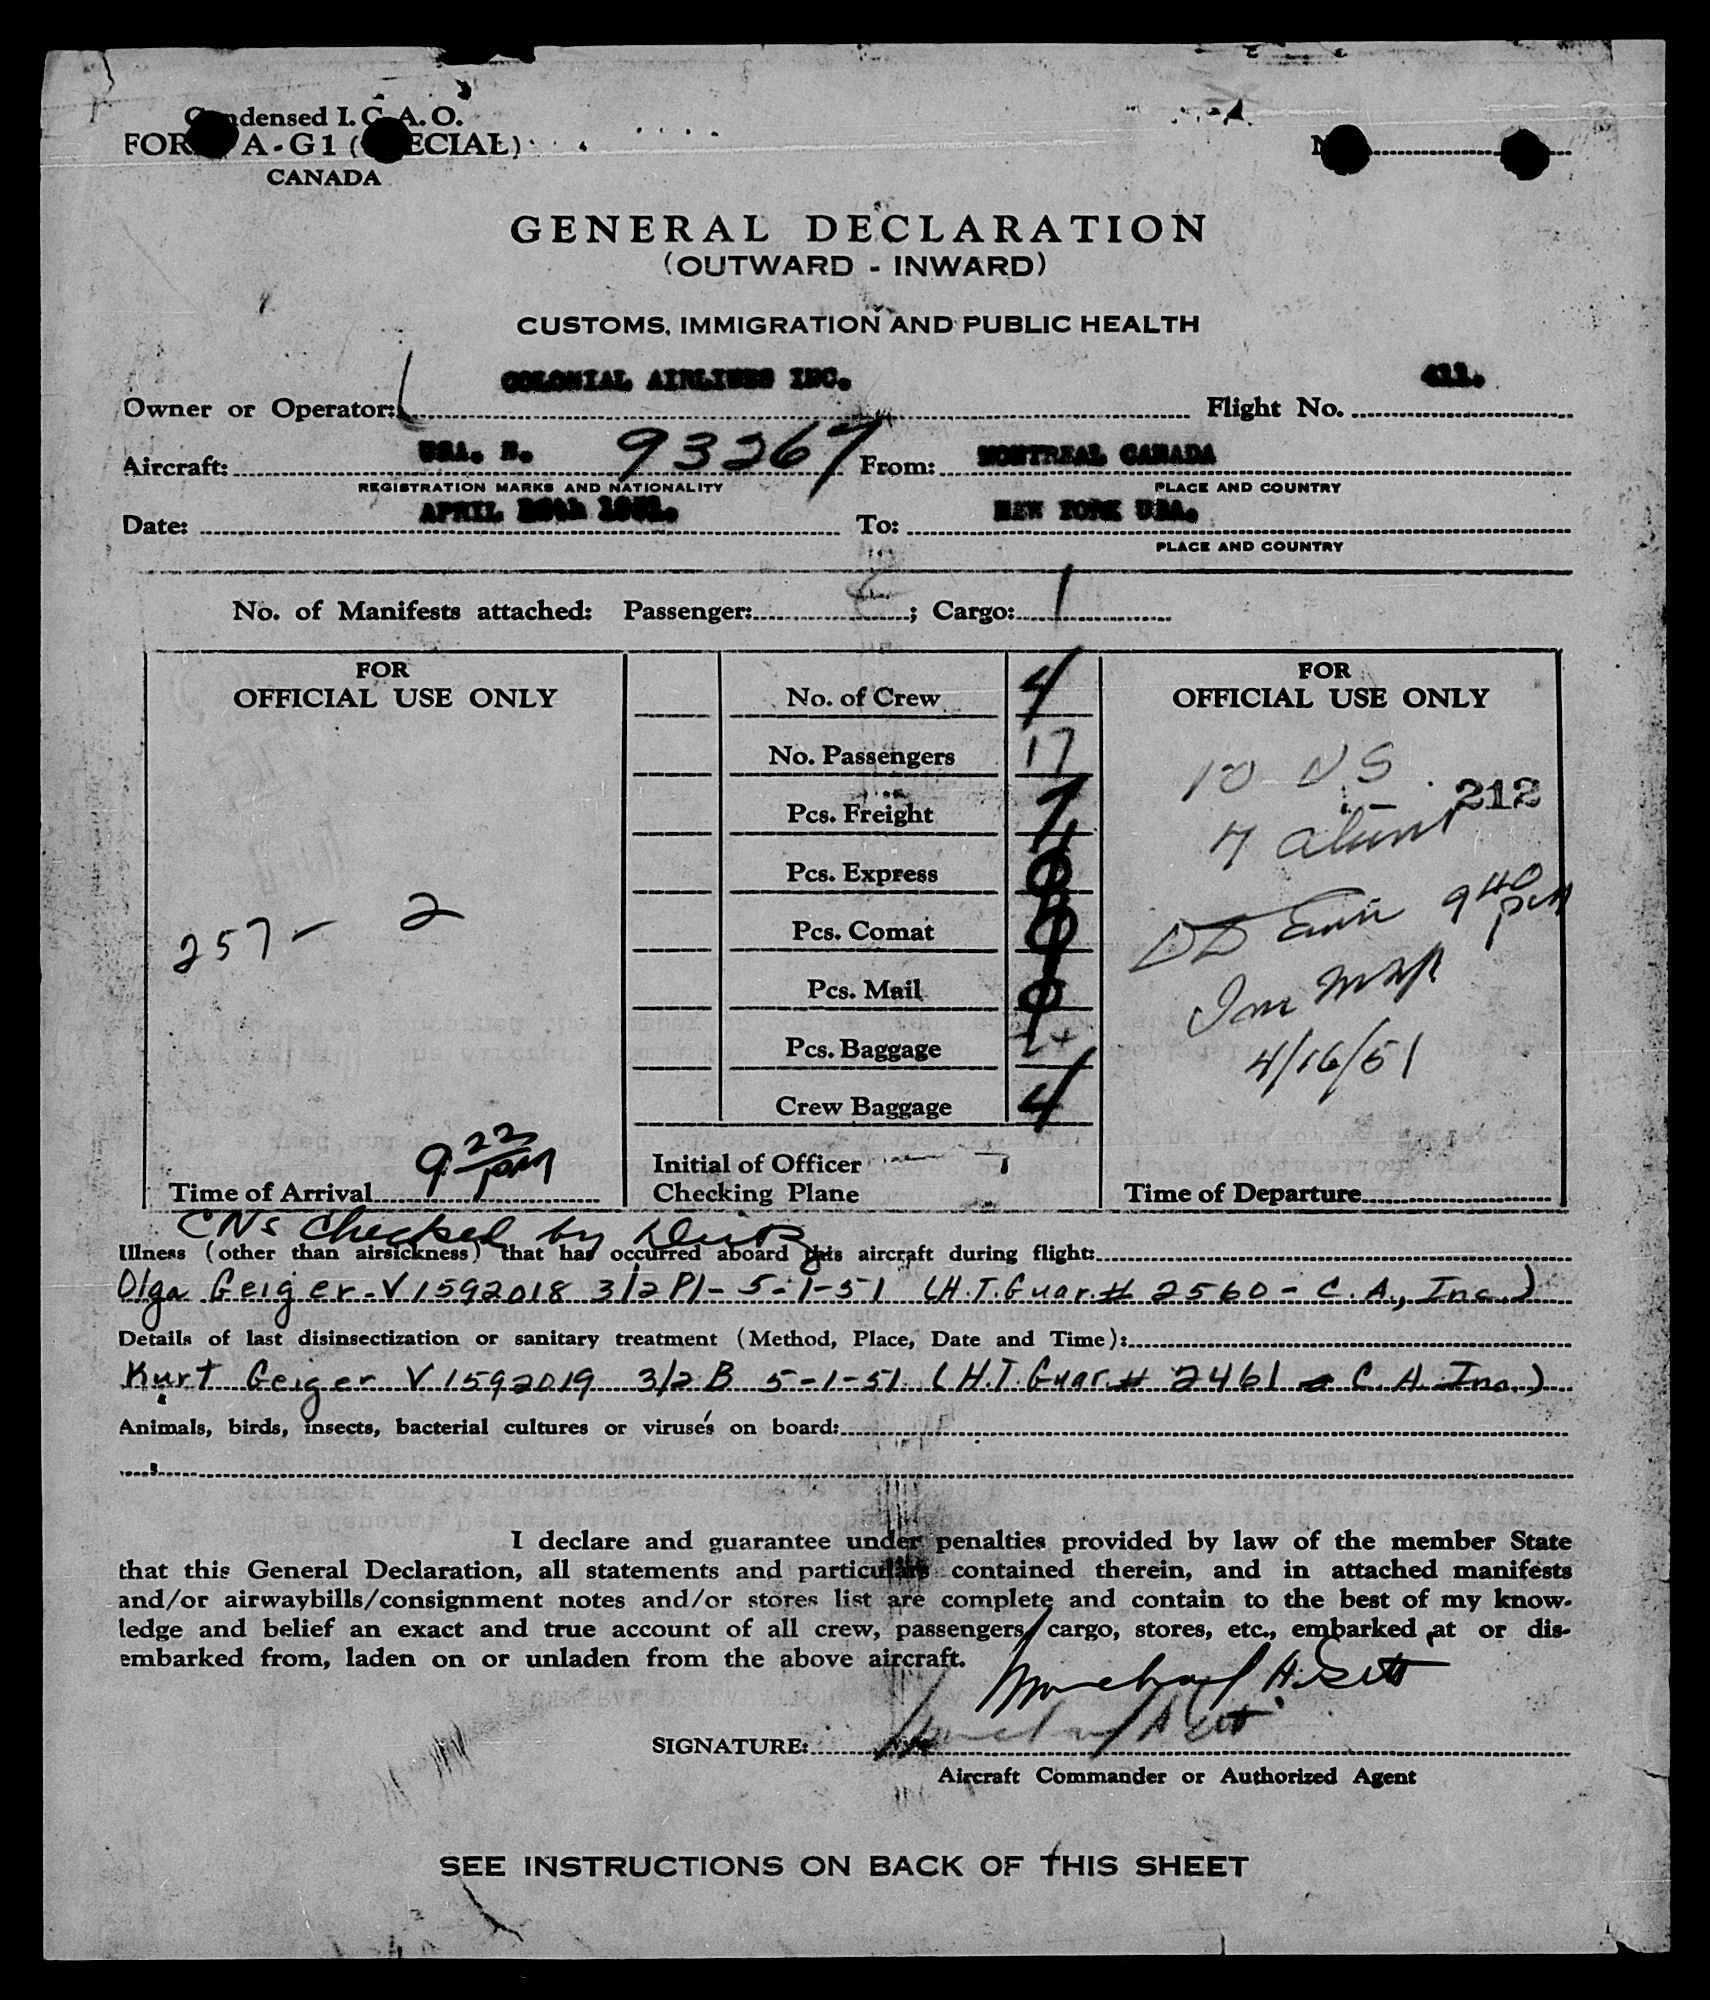 Condensed I. C. A. O.
FORM A - G 1 (SPECIAL)
CANADA
GENERAL DECLARATION
(OUTWARD - INWARD)
CUSTOMS, IMMIGRATION AND PUBLIC HEALTH
COLONIAL AIRLINES INC. 411.
Owner or Operator: Flight No.
Aircraft: USA. N. 93267 From: MONTREAL CANADA
REGISTRATION MARKS AND NATIONALITY PLACE AND COUNTRY
Date: APRIL 1951. To: NEW YORK USA.
PLACE AND COUNTRY
No. of Manifests attached: Passenger: ; Cargo: 1
FOR
OFFICIAL USE ONLY
257 - 2
9 22 PM
Time of Arrival
No. of Crew 4
No. Passengers 17
Pcs. Freight 7
Pcs. Express 0
Pcs. Comat 0
Pcs. Mail 0
Pcs. Baggage
Crew Baggage 4
Initial of Officer
Checking Plane
FOR
OFFICIAL USE ONLY
10 US
212
7 aliens
9 40 PM
4/16/51
Time of Departure
CNs checked by
Illness (other than airsickness) that has occurred aboard this aircraft during flight:
Olga Geiger - V1592018 3/2 P1 - 5-1-51 (H.T. Guar. # 2560 - C.A., Inc.)
Details of last disinsectization or sanitary treatment (Method, Place, Date and Time):
Kurt Geiger V1592019 3/2 B 5-1-51 (H.T. Guar. # 2461 - C.A. Inc.)
Animals, birds, insects, bacterial cultures or viruses on board:
I declare and guarantee under penalties provided by law of the member State
that this General Declaration, all statements and particulars contained therein, and in attached manifests
and/or airwaybills/consignment notes and/or stores list are complete and contain to the best of my know-
ledge and belief an exact and true account of all crew, passengers, cargo, stores, etc., embarked at or dis-
embarked from, laden on or unladen from the above aircraft.
SIGNATURE:
Aircraft Commander or Authorized Agent
SEE INSTRUCTIONS ON BACK OF THIS SHEET